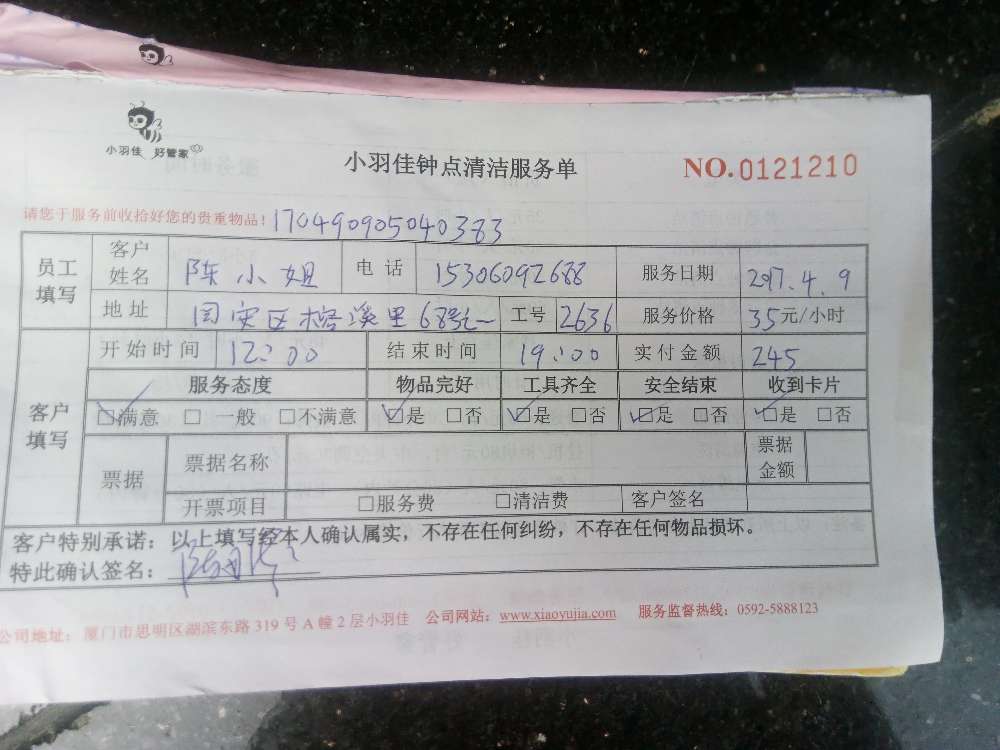 小羽佳 好管家
小羽佳钟点清洁服务单
NO.0121210
请您于服务前收拾好您的贵重物品！170490905040383
员工填写 客户姓名 陈小姐 电话 15306092688 服务日期 2017.4.9
地址 68号 工号 2636 服务价格 35元/小时
客户填写 开始时间 12:00 结束时间 19:00 实付金额 245
服务态度 物品完好 工具齐全 安全结束 收到卡片
☑满意 □一般 □不满意 ☑是 □否 ☑是 □否 ☑是 □否 ☑是 □否
票据 票据名称 票据金额
开票项目 □服务费 □清洁费 客户签名
客户特别承诺：以上填写经本人确认属实，不存在任何纠纷，不存在任何物品损坏。
特此确认签名：
公司地址：厦门市思明区湖滨东路319号A幢2层小羽佳 公司网站：www.xiaoyujia.com 服务监督热线：0592-5888123